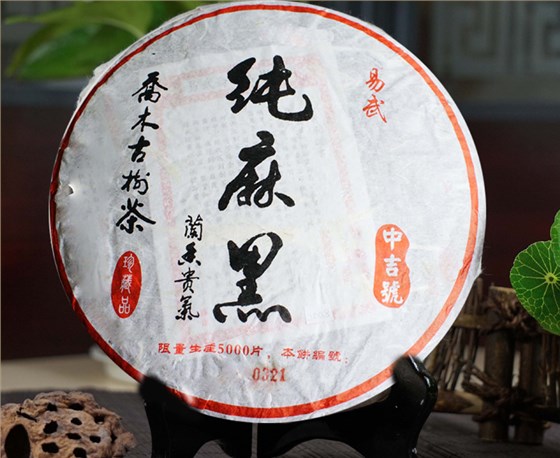 易武
纯麻黑
蘭香貴氣
喬木古樹茶
珍藏品
中吉號
限量生産5000片，本餅編號：
0321